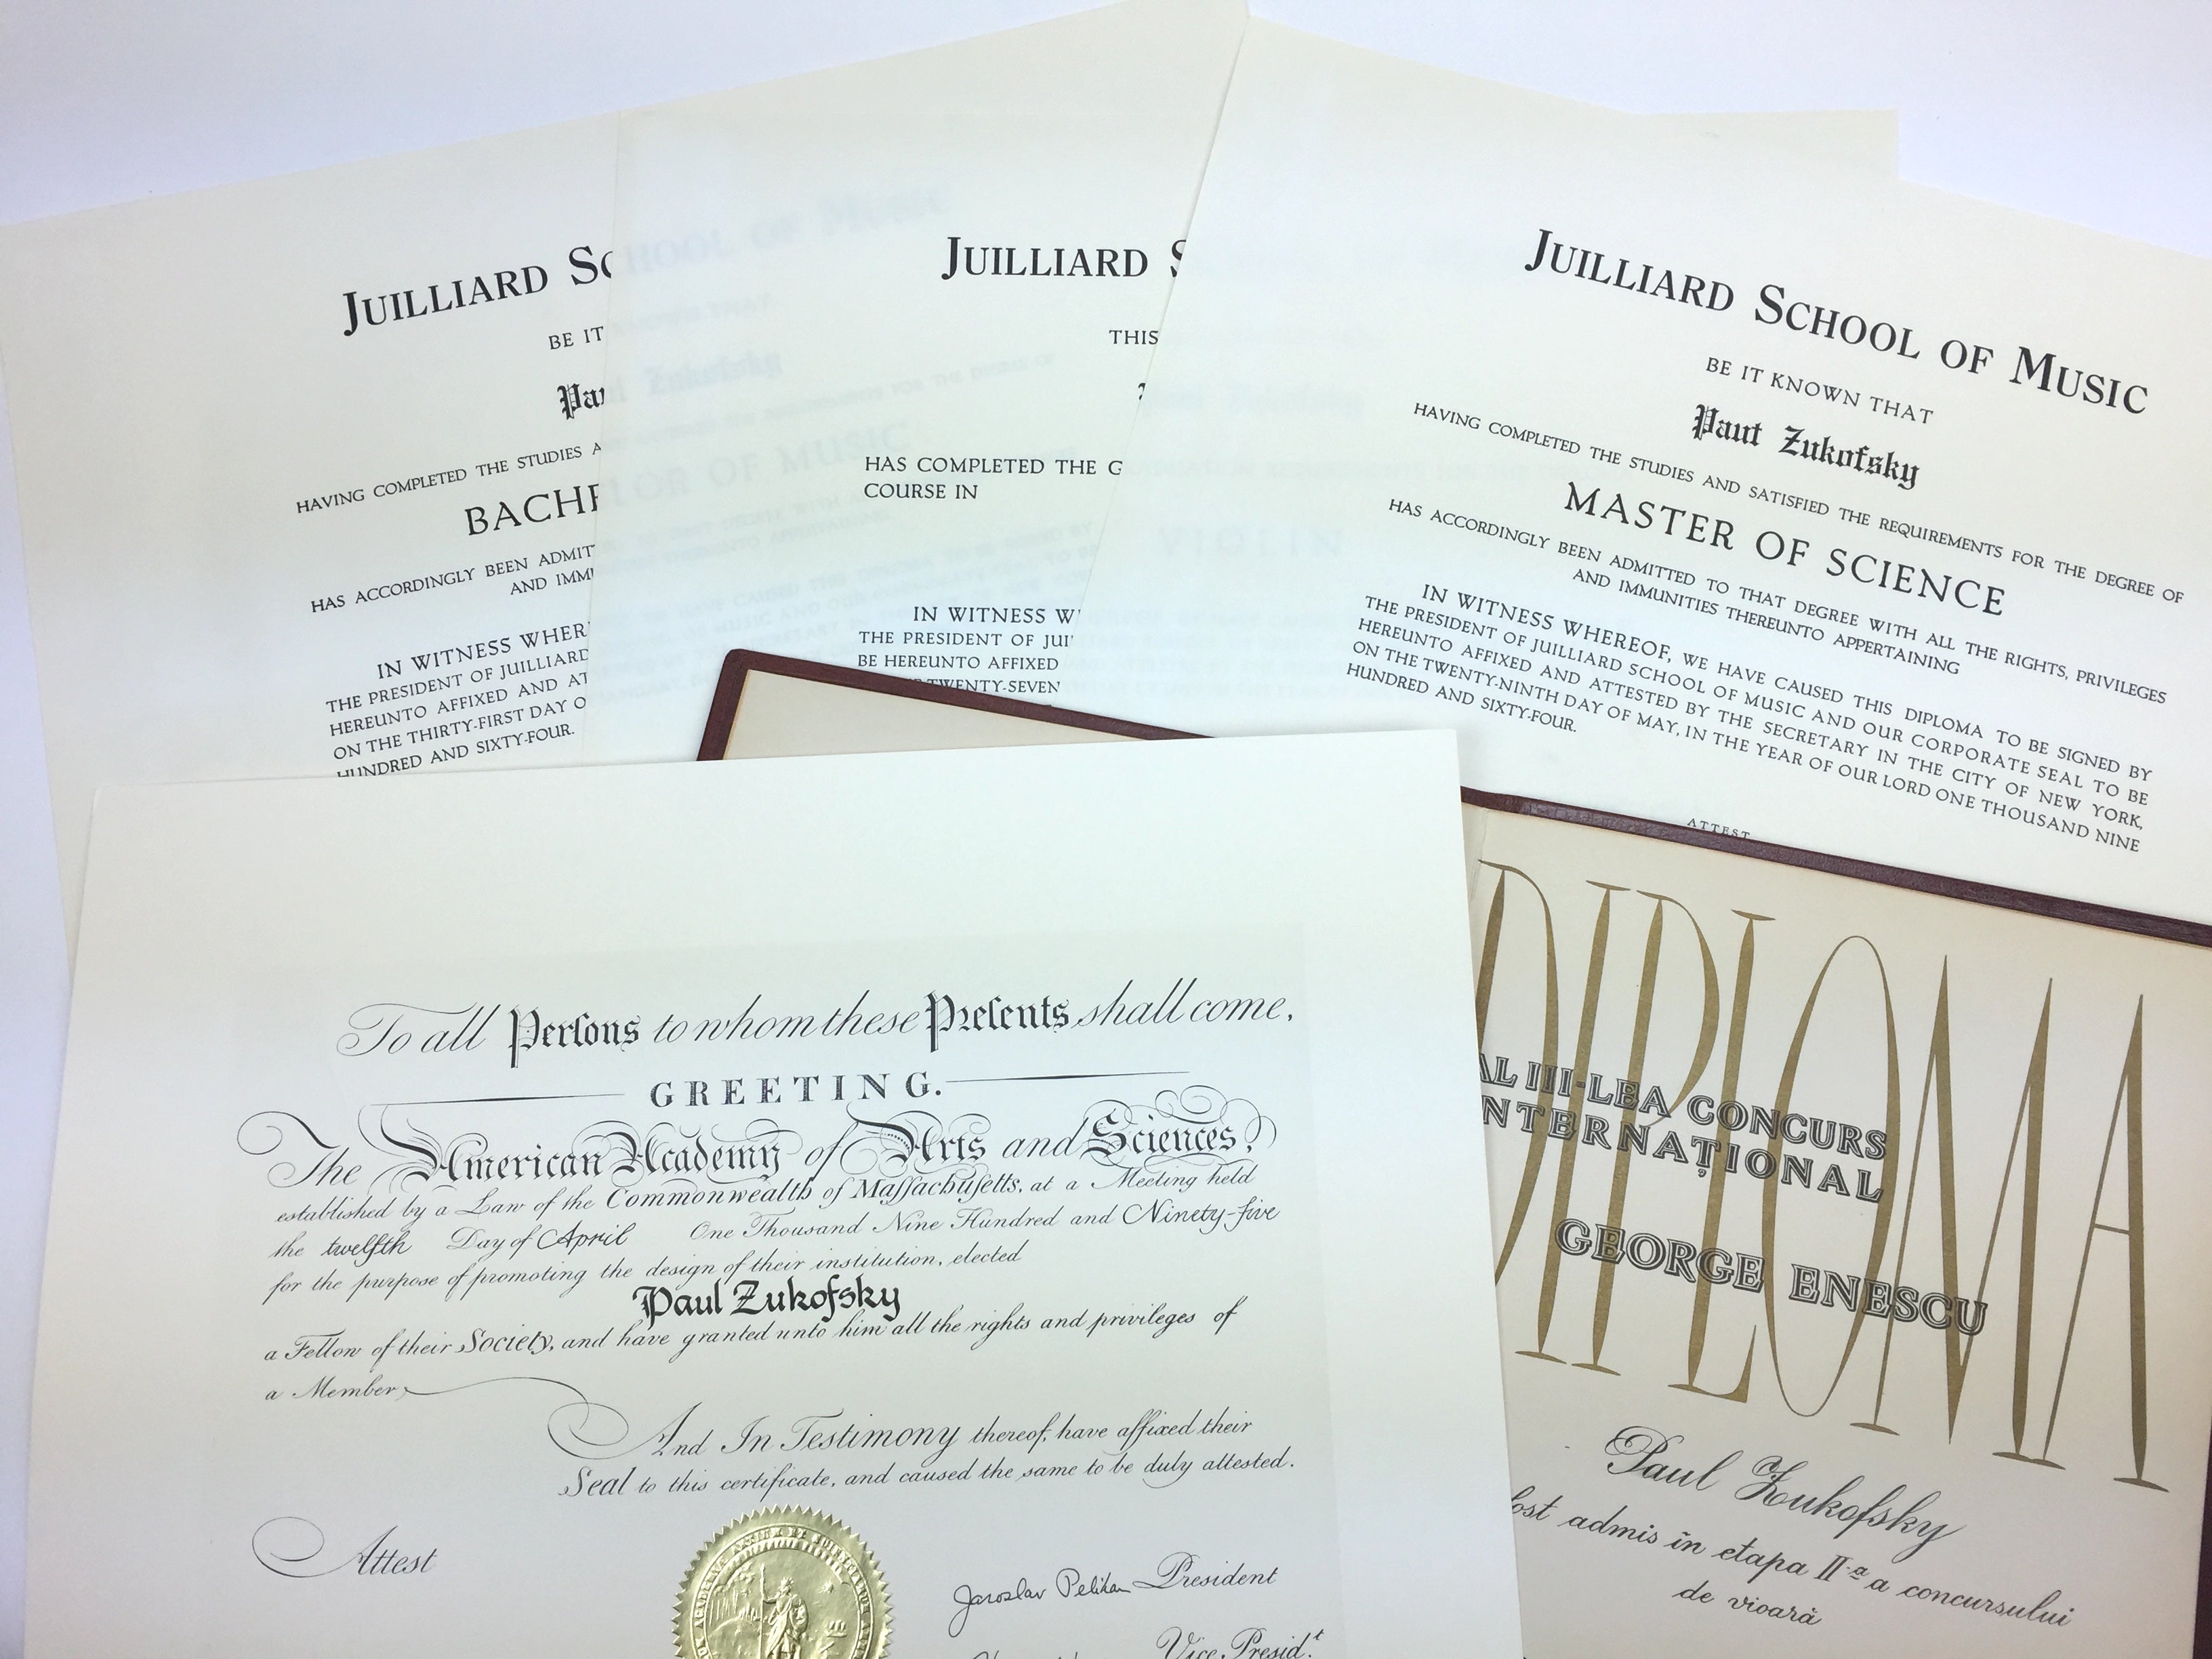 JUILLIARD SC
BE IT
Pau
HAVING COMPLETED THE STUDIES A
BACHE
HAS ACCORDINGLY BEEN ADMIT
AND IMMU
IN WITNESS WHER
THE PRESIDENT OF JUILLIARD
HEREUNTO AFFIXED AND AT
ON THE THIRTY-FIRST DAY O
HUNDRED AND SIXTY-FOUR.
JUILLIARD S
THIS
HAS COMPLETED THE G
COURSE IN
VIOLIN
IN WITNESS W
THE PRESIDENT OF JUI
BE HEREUNTO AFFIXED
TWENTY-SEVEN
JUILLIARD SCHOOL OF MUSIC
BE IT KNOWN THAT
Paul Zukofsky
HAVING COMPLETED THE STUDIES AND SATISFIED THE REQUIREMENTS FOR THE DEGREE OF
MASTER OF SCIENCE
HAS ACCORDINGLY BEEN ADMITTED TO THAT DEGREE WITH ALL THE RIGHTS, PRIVILEGES
AND IMMUNITIES THEREUNTO APPERTAINING
IN WITNESS WHEREOF, WE HAVE CAUSED THIS DIPLOMA TO BE SIGNED BY
THE PRESIDENT OF JUILLIARD SCHOOL OF MUSIC AND OUR CORPORATE SEAL TO BE
HEREUNTO AFFIXED AND ATTESTED BY THE SECRETARY IN THE CITY OF NEW YORK,
ON THE TWENTY-NINTH DAY OF MAY, IN THE YEAR OF OUR LORD ONE THOUSAND NINE
HUNDRED AND SIXTY-FOUR.
ATTEST
To all Persons to whom these Presents shall come,
GREETING.
The American Academy of Arts and Sciences,
established by a Law of the Commonwealth of Massachusetts, at a Meeting held
the twelfth Day of April One Thousand Nine Hundred and Ninety-five
for the purpose of promoting the design of their institution, elected
Paul Zukofsky
a Fellow of their Society, and have granted unto him all the rights and privileges of
a Member;
And In Testimony thereof, have affixed their
Seal to this certificate, and caused the same to be duly attested.
Attest
Jaroslav Pelikan President
Vice Presid.t
DIPLOMA
AL III-LEA CONCURS
INTERNAȚIONAL
GEORGE ENESCU
Paul Zukofsky
fost admis în etapa II-a a concursului
de vioară